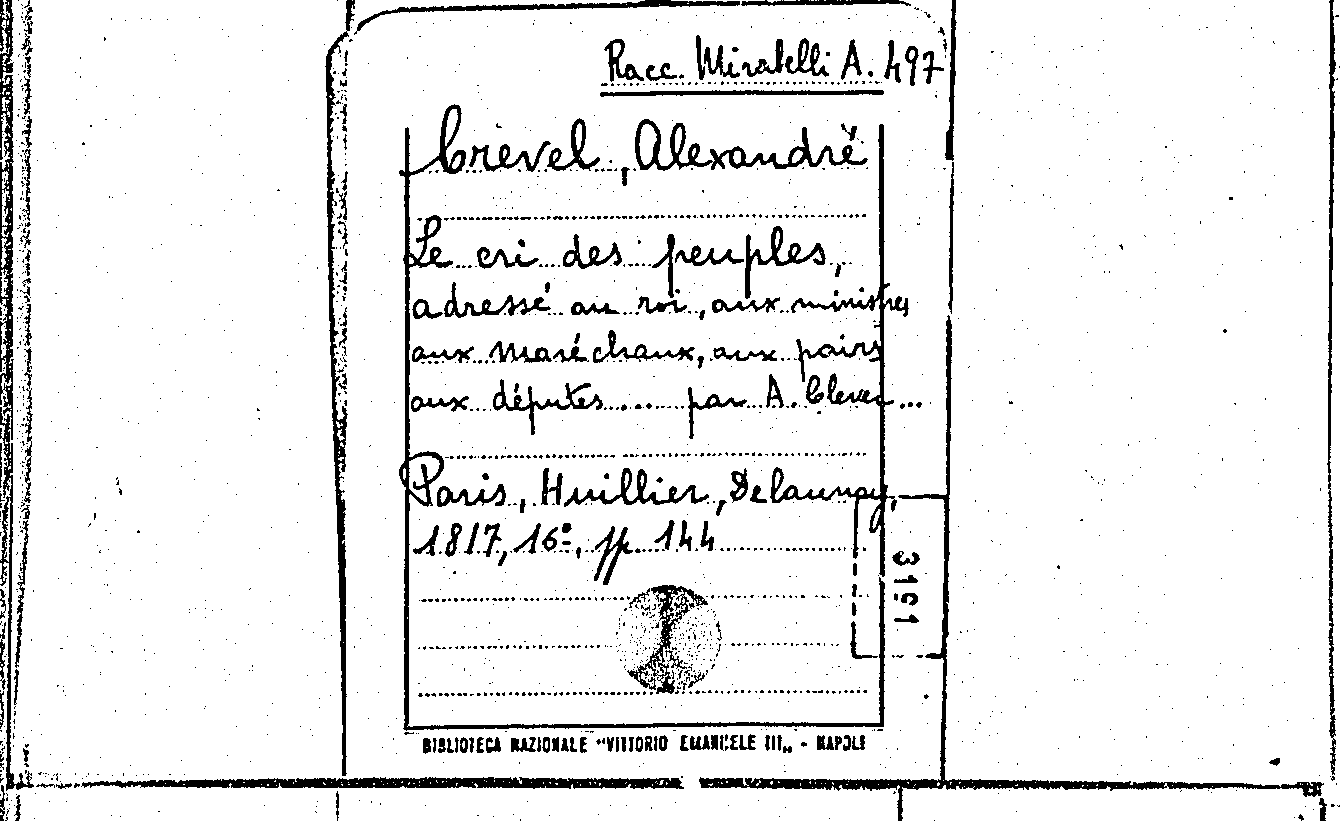 Racc. Miratelli A. 497
Crevel, Alexandrè
Le cri des peuples,
adressé au roi, aux ministres
aux maréchaux, aux pairs
aux députes... par A. Clever...
Paris, Huillier, Delaunay,
1817, 16º, pp. 144
3191
BIBLIOTECA NAZIONALE "VITTORIO EMANUELE III„ - NAPOLI